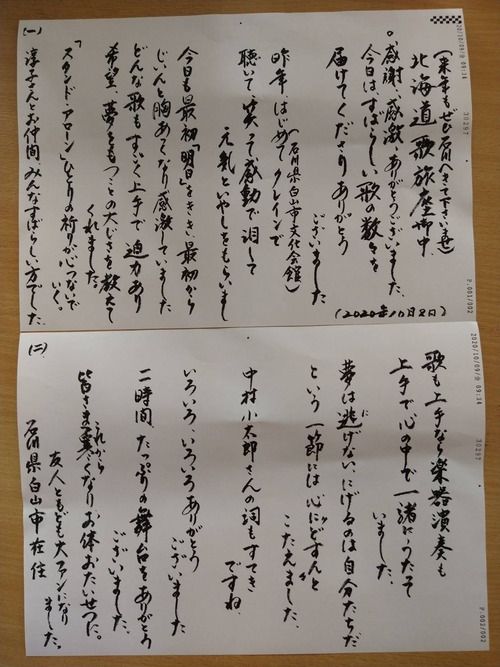 2020/10/09/金 09:34
30297
P.001/002
(来年もぜひ石川へきて下さいませ)
北海道歌旅座御中
。感謝、感激、ありがとうございました。
今日はすばらしい歌の数々を
届けてくださりありがとう
ございました
(2020年10月8日)
(石川県白山市文化会館)
昨年はじめてクレインで
聴いて、笑って感動で涙して
元気といやしをもらいまし
今日も最初「明日」をききい最初から
じいんと胸あつくなり感激していました
どんな歌もすごく上手で迫力あり
希望、夢をもつことの大じさを教えて
くれました。
「スタンド・アローン」ひとりの祈りが心つないで
いく。
淳子さんとお仲間みんなすばらしい方でした。
(一)
2020/10/09/金 09:34
30297
P.002/002
歌も上手なら楽器演奏も
上手で心の中で一緒にうたって
いました。
夢は逃げない、にげるのは自分たちだ
に
という一節には心にどすんと
こたえました。
中村小太郎さんの詞もすてき
ですね。
いろいろ、いろいろありがとう
ございました
二時間、たっぷりの舞台をありがとう
ございました。
これから
皆さま寒くなりお体おたいせつに。
友人ともども大ファンになり
ました。
石川県白山市在住
(二)